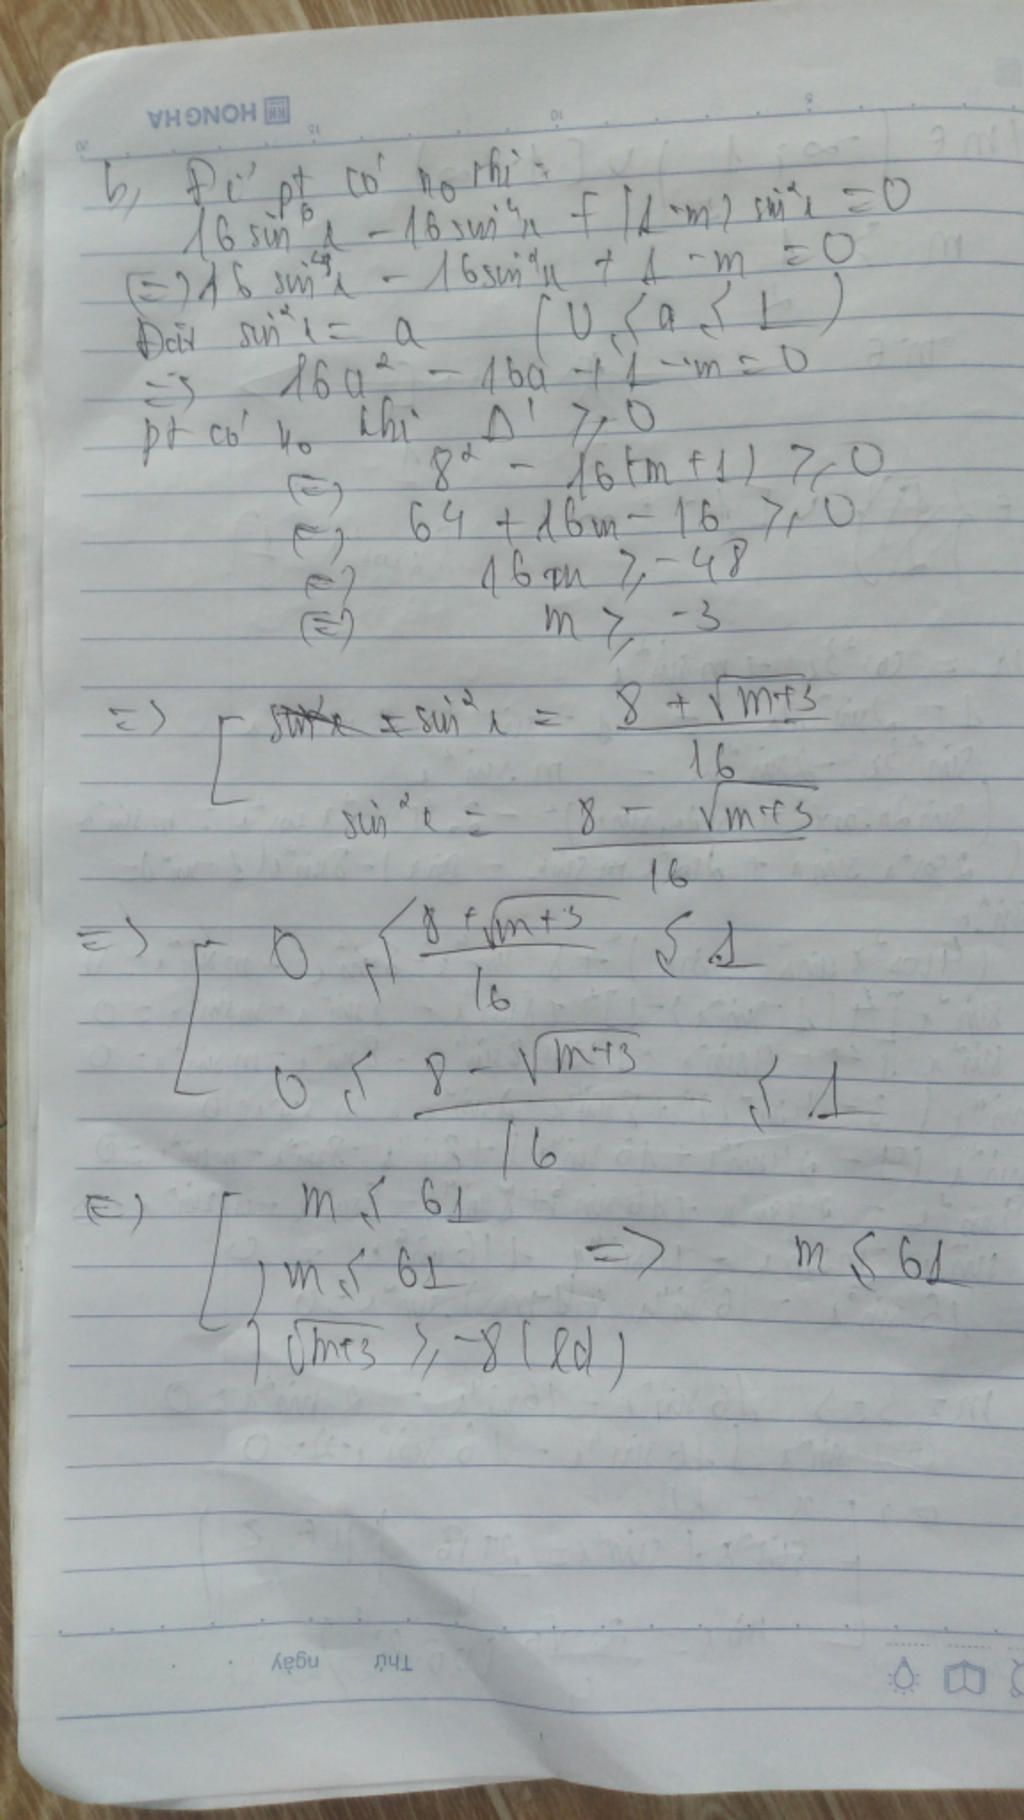 HONG HA
b, Để pt có no thì:
16 sin⁶x - 16 sin⁴x + (1-m) sin²x = 0
(=) 16 sin⁴x - 16 sin²x + 1 - m = 0
Đặt sin²x = a (0 ≤ a ≤ 1)
=> 16a² - 16a + 1 - m = 0
pt có no khi Δ' ≥ 0
(=) 8² - 16(-m+1) ≥ 0
(=) 64 + 16m - 16 ≥ 0
(=) 16m ≥ -48
(=) m ≥ -3
=> [ sin²x = (8 + √(m+3))/16
sin²x = (8 - √(m+3))/16
=> [ 0 ≤ (8 + √(m+3))/16 ≤ 1
0 ≤ (8 - √(m+3))/16 ≤ 1
(=) [ m ≤ 61
{ m ≤ 61 => m ≤ 61
√(m+3) ≥ -8 (lđ)
Thứ ngày